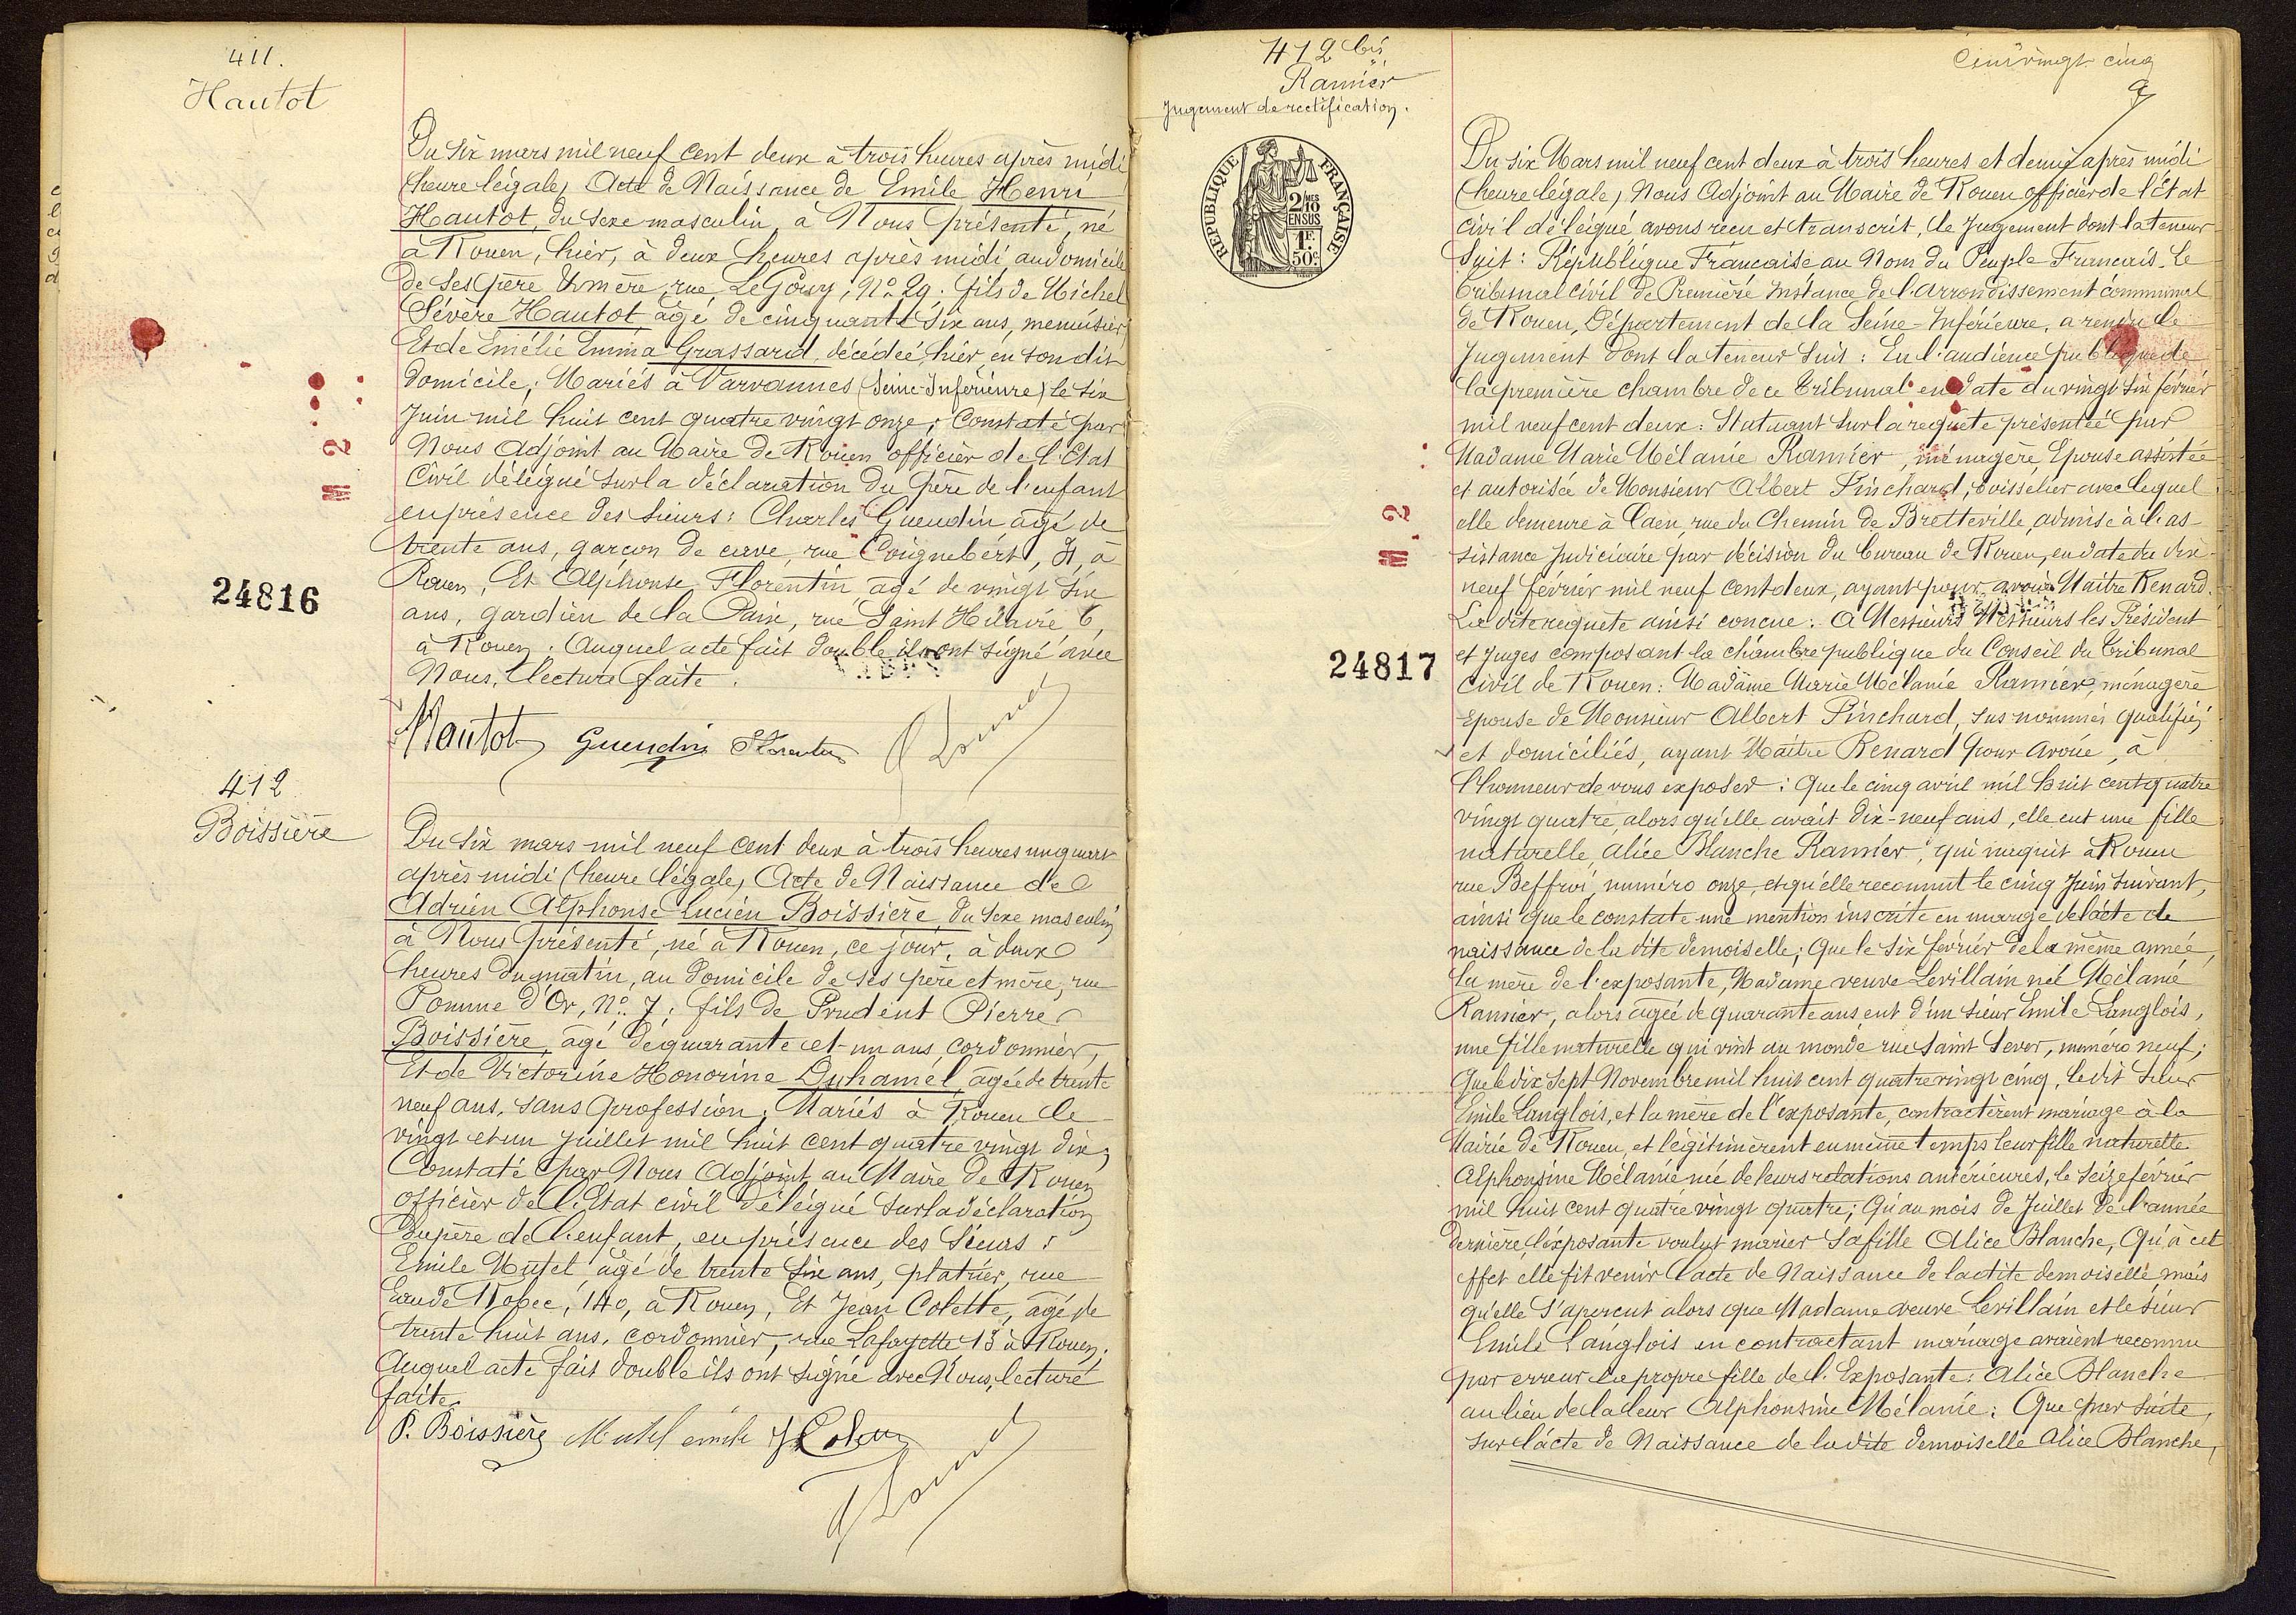 411.
Hautot
Du six mars mil neuf cent deux à trois heures après midi
(heure légale) Acte de Naissance de Emile Henri
Hautot, du sexe masculin, à Nous présenté, né
à Rouen, hier, à deux heures après midi au domicile
de ses père & mère, rue LeGouy, No. 29. fils de Michel
Sévère Hautot âgé de cinquante six ans, menuisier,
Et de Emélie Emma Grassard, décédée, hier, en son dit
domicile; Mariés à Varvannes (Seine-Inférieure) le six
Juin mil huit cent quatre vingt onze; Constaté par
Nous Adjoint au Maire de Rouen officier de l'Etat
Civil délégué sur la déclaration du père de l'enfant
en présence des sieurs: Charles Gueudin âgé de
trente ans, garçon de cave, rue Coignebert, 31, à
Rouen, Et Alphonse Florentin, âgé de vingt six
ans, gardien de la Paix, rue Saint Hilaire 6,
à Rouen. Auquel acte fait double ils ont signé avec
Nous, lecture faite.
Hautot Gueudin Florentin
M 2
24816
412
Boissière
Du six mars mil neuf cent deux à trois heures un quart
après midi (heure légale) Acte de Naissance de
Adrien Alphonse Lucien Boissière, du sexe masculin
à Nous présenté, né à Rouen, ce jour, à deux
heures du matin, au domicile de ses père et mère, rue
Pomme d'Or, No. 7; fils de Prudent Pierre
Boissière, âgé de quarante et un ans, cordonnier,
Et de Victorine Honorine Duhamel, âgée de trente
neuf ans, sans profession; Mariés à Rouen le
vingt et un Juillet mil huit cent quatre vingt dix;
Constaté par Nous Adjoint au Maire de Rouen
officier de l'Etat civil délégué sur la déclaration
du père de l'enfant, en présence des Sieurs:
Emile Mutel âgé de trente six ans, plâtrier, rue
Eau de Robec, 140, à Rouen, Et Jean Colette, âgé de
trente huit ans, cordonnier, rue Lafayette 13 à Rouen.
Auquel acte fait double ils ont signé avec Nous, lecture
faite.
P. Boissière Mutel emile
412 bis
Ramier
Jugement de rectification.
REPUBLIQUE FRANÇAISE
2/10 MES
EN SUS
1F.
50c.
M. 2
24817
Du six Mars mil neuf cent deux à trois heures et demie après midi
(heure légale) Nous Adjoint au Maire de Rouen officier de l'Etat
civil délégué avons reçu et transcrit, le Jugement dont la teneur
Suit: République Française au Nom du Peuple Francais. Le
Tribunal Civil de Première Instance de l'arrondissement communal
de Rouen, Département de la Seine-Inférieure, a rendu le
Jugement dont la teneur suit: En l'audience publique de
la première chambre de ce Tribunal en date du vingt six février
mil neuf cent deux: Statuant sur la requête présentée par
Madame Marie Mélanie Ramier, ménagère, Epouse assistée
et autorisée de Monsieur Albert Pinchard, boisselier avec lequel
elle demeure à Caen, rue du Chemin de Bretteville, admise à l'as-
sistance Judiciaire par décision du bureau de Rouen, en date du dix-
neuf février mil neuf cent deux, ayant pour avoué Maitre Renard.
La dite requête ainsi concue: A Messieurs Messieurs les Président
et Juges composant la chambre publique du Conseil du Tribunal
Civil de Rouen: Madame Marie Mélanie Ramier, ménagère
Epouse de Monsieur Albert Pinchard, sus nommés qualifiés
et domiciliés, ayant Maitre Renard pour Avoué, à
l'honneur de vous exposer: Que le cinq avril mil huit cent quatre
vingt quatre, alors qu'elle avait dix-neuf ans, elle eut une fille
naturelle, Alice Blanche Ramier, qui naquit à Rouen
rue Beffroi, numéro onze, et qu'elle reconnut le cinq Juin suivant,
ainsi que le constate une mention inscrite en marge de l'acte de
naissance de la dite demoiselle; Que le six février de la même année
la mère de l'exposante, Madame veuve Levillain née Mélanie
Ramier, alors agée de quarante ans eut d'un sieur Emile Langlois,
une fille naturelle qui vint au monde rue Saint Sever, numéro neuf;
Que le dix sept Novembre mil huit cent quatre vingt cinq, ledit Sieur
Emile Langlois, et la mère de l'exposante, contractèrent mariage à la
Mairie de Rouen, et légitimèrent en même temps leur fille naturelle
Alphonsine Mélanie née de leurs relations antérieures, le seize février
mil huit cent quatre vingt quatre; Qu'au mois de Juillet de l'année
dernière, l'exposante voulut marier sa fille Alice Blanche, Qu'à cet
effet elle fit venir l'acte de Naissance de ladite demoiselle mais
qu'elle s'apercut alors que Madame veuve Levillain et le sieur
Emile Langlois en contractant mariage avaient reconnu
par erreur la propre fille de l'Exposante: Alice Blanche
au lieu de la leur Alphonsine Mélanie: Que par suite,
sur l'acte de Naissance de ladite demoiselle Alice Blanche,